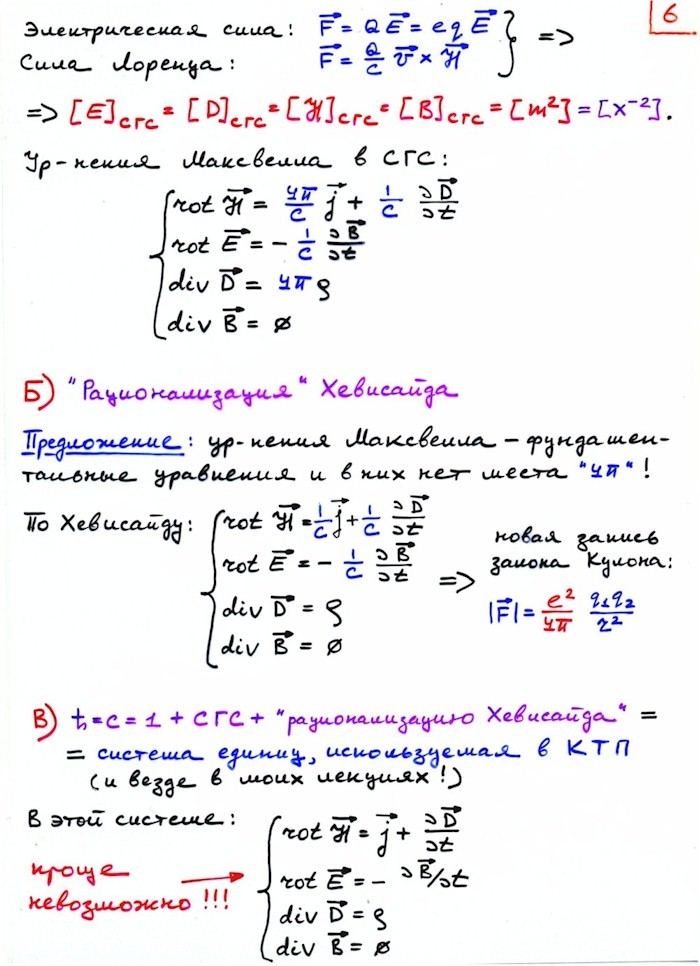 6
Электрическая сила: F⃗ = Q E⃗ = eq E⃗ } =>
Сила Лоренца: F⃗ = Q/c v⃗ × H⃗
=> [E]сгс = [D]сгс = [H]сгс = [B]сгс = [m²] = [x⁻²].
Ур-нения Максвелла в СГС:
rot H⃗ = 4π/c j⃗ + 1/c ∂D⃗/∂t
rot E⃗ = - 1/c ∂B⃗/∂t
div D⃗ = 4πρ
div B⃗ = ∅
Б) "Рационализация" Хевисайда
Предложение: ур-нения Максвелла – фундамен-
тальные уравнения и в них нет места "4π"!
По Хевисайду:
rot H⃗ = 1/c j⃗ + 1/c ∂D⃗/∂t
rot E⃗ = - 1/c ∂B⃗/∂t
div D⃗ = ρ
div B⃗ = ∅
=>
новая запись
закона Кулона:
|F⃗| = e²/4π q₁q₂/r²
В) ħ = c = 1 + СГС + "рационализацию Хевисайда" =
= система единиц, используемая в КТП
(и везде в моих лекциях!)
В этой системе:
rot H⃗ = j⃗ + ∂D⃗/∂t
rot E⃗ = - ∂B⃗/∂t
div D⃗ = ρ
div B⃗ = ∅
проще
невозможно!!!